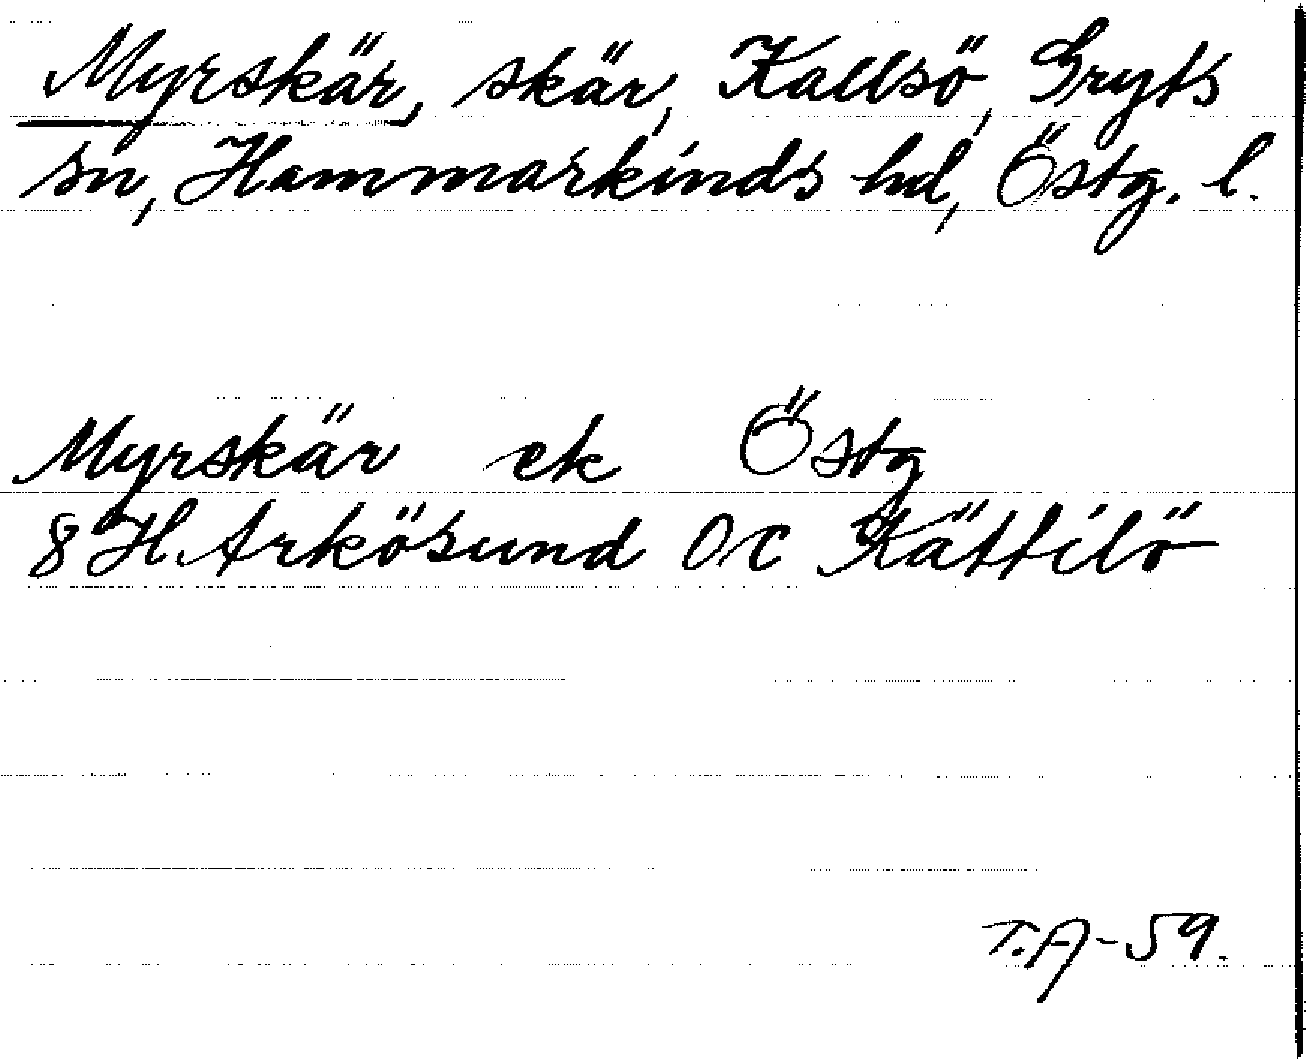 Myrskär, skär, Kallsö, Gryts
sn, Hammarkinds hd, Östg. l.
Myrskär ek Östg
8 H. Arkösund OC Kättilö
T.A-59.